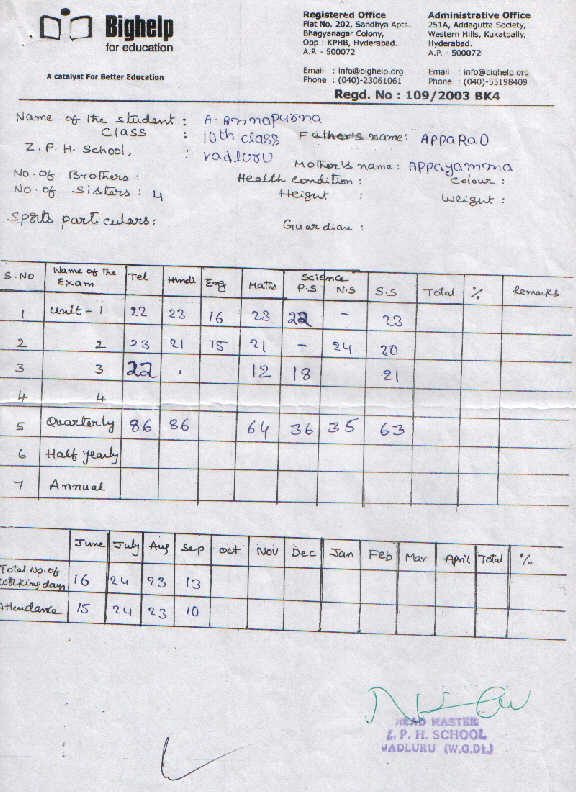 Bighelp
for education
A catalyst For Better Education
Registered Office
Flat No. 202, Sandhya Apts.
Bhagyanagar Colony,
Opp : KPHB, Hyderabad.
A.P. - 500072
Email : info@bighelp.org
Phone : (040)-23061061
Administrative Office
251A, Addagutta Society,
Western Hills, Kukatpally,
Hyderabad.
A.P. - 500072
Email : info@bighelp.org
Phone : (040)-55198409
Regd. No : 109/2003 BK4
Name of the student : A. Annapurna
Class : 10th class Father's name: APPARAO
Z. P. H. School, : Vadluru
Mother's name: APPayamma
No. of Brothers : Health condition : Colour :
No. of Sisters : 4 Height : Weight :
Sports particulars: Guardian :
S.NO Name of the Exam Tel Hindi Eng Maths Science P.S N.S S.S Total % Remarks
1 Unit - 1 22 23 16 23 22 - 23
2 2 23 21 15 21 - 24 20
3 3 22 12 18 21
4 4
5 Quarterly 86 86 64 36 35 63
6 Half yearly
7 Annual
June July Aug Sep Oct Nov Dec Jan Feb Mar April Total %
Total No. of working days 16 24 23 13
Attendance 15 24 23 10
HEAD MASTER
Z. P. H. SCHOOL
VADLURU (W.G.Dt.)